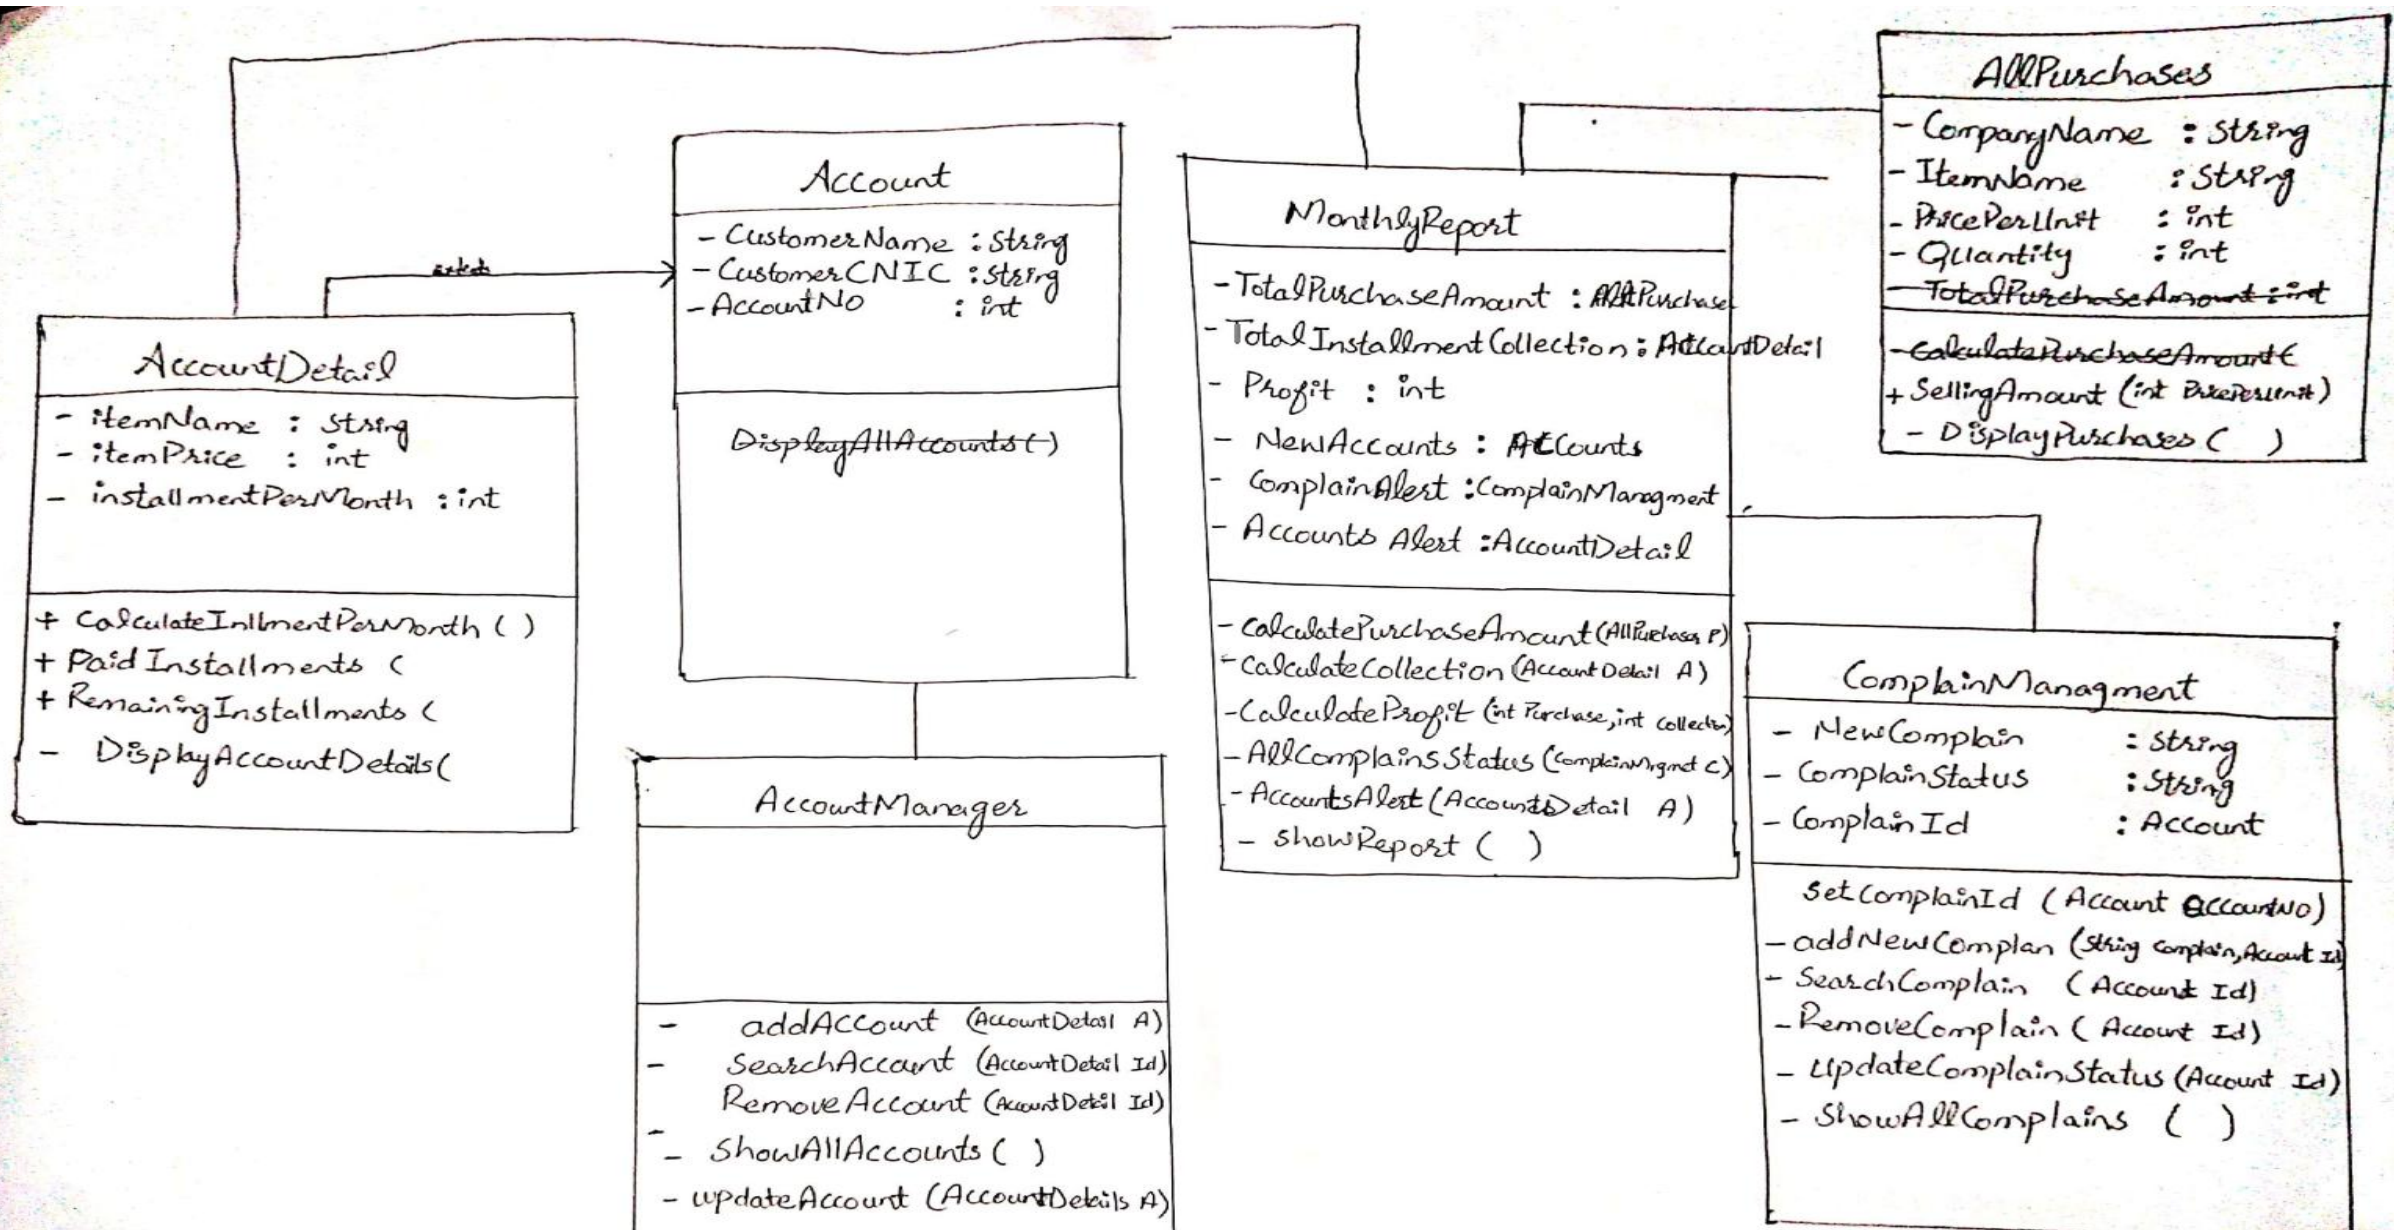 AccountDetail
- itemName : String
- itemPrice : int
- installmentPerMonth : int
+ CalculateInllmentPerMonth ( )
+ Paid Installments (
+ RemainingInstallments (
- DisplayAccountDetails(
Account
- CustomerName : String
- CustomerCNIC : String
- AccountNo : int
DisplayAllAccounts()
AccountManager
- addAccount (AccountDetail A)
- SearchAccount (AccountDetail Id)
RemoveAccount (AccountDetail Id)
-
- ShowAllAccounts ( )
- updateAccount (AccountDetails A)
MonthlyReport
- TotalPurchaseAmount : AllPurchase
- TotalInstallmentCollection : AccountDetail
- Profit : int
- NewAccounts : Accounts
- ComplainAlert : ComplainManagment
- Accounts Alert : AccountDetail
- CalculatePurchaseAmount (AllPurchases P)
- CalculateCollection (AccountDetail A)
- CalculateProfit (int Purchase, int collection)
- AllComplainsStatus (ComplainMngmet C)
- AccountsAlert (AccountsDetail A)
- showReport ( )
AllPurchases
- CompanyName : String
- ItemName : String
- PricePerUnit : int
- Quantity : int
- TotalPurchaseAmount : int
- CalculatePurchaseAmount (
+ SellingAmount (int PricePerUnit)
- DisplayPurchases ( )
ComplainManagment
- NewComplain : String
- ComplainStatus : String
- ComplainId : Account
SetComplainId (Account AccountNo)
- addNewComplan (String Complain, Account Id)
- SearchComplain (Account Id)
- RemoveComplain (Account Id)
- UpdateComplainStatus (Account Id)
- ShowAllComplains ( )